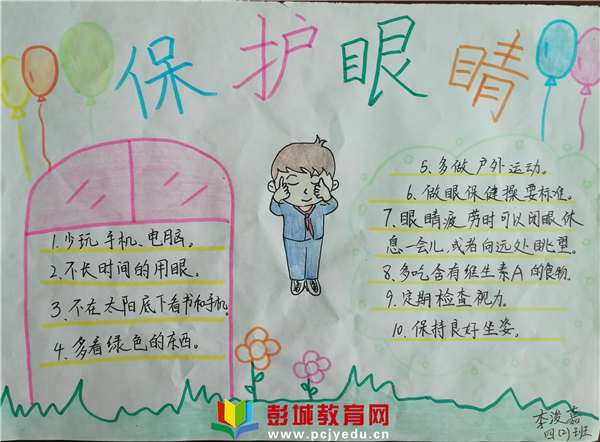 保护眼睛
1.少玩手机、电脑。
2.不长时间的用眼。
3.不在太阳底下看书和手机。
4.多看绿色的东西。
5.多做户外运动。
6.做眼保健操要标准。
7.眼睛疲劳时可以闭眼休
息一会儿,或者向远处眺望。
8.多吃含有维生素A的食物。
9.定期检查视力。
10.保持良好坐姿。
李浚嘉
四(2)班
彭城教育网
www.pcjyedu.cn